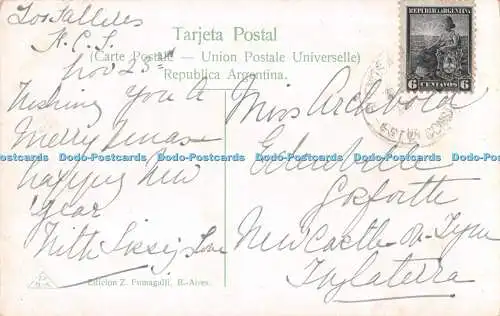 Los Talleres
F.C.S.
Nov 25th
Wishing You A
Merry Xmas
happy New
Year
With Sissy's Love
Tarjeta Postal
(Carte Postale — Union Postale Universelle)
Republica Argentina.
REPUBLICA ARGENTINA
6 CENTAVOS 6
Miss Archbold
Edenville
Gosforth
New Castle-on-Tyne
Inglaterra
Dodo-Postcards Dodo-Postcards Dodo-Postcards Dodo-Postcards Dodo-Postcards
Edicion Z. Fumagalli, B.-Aires.